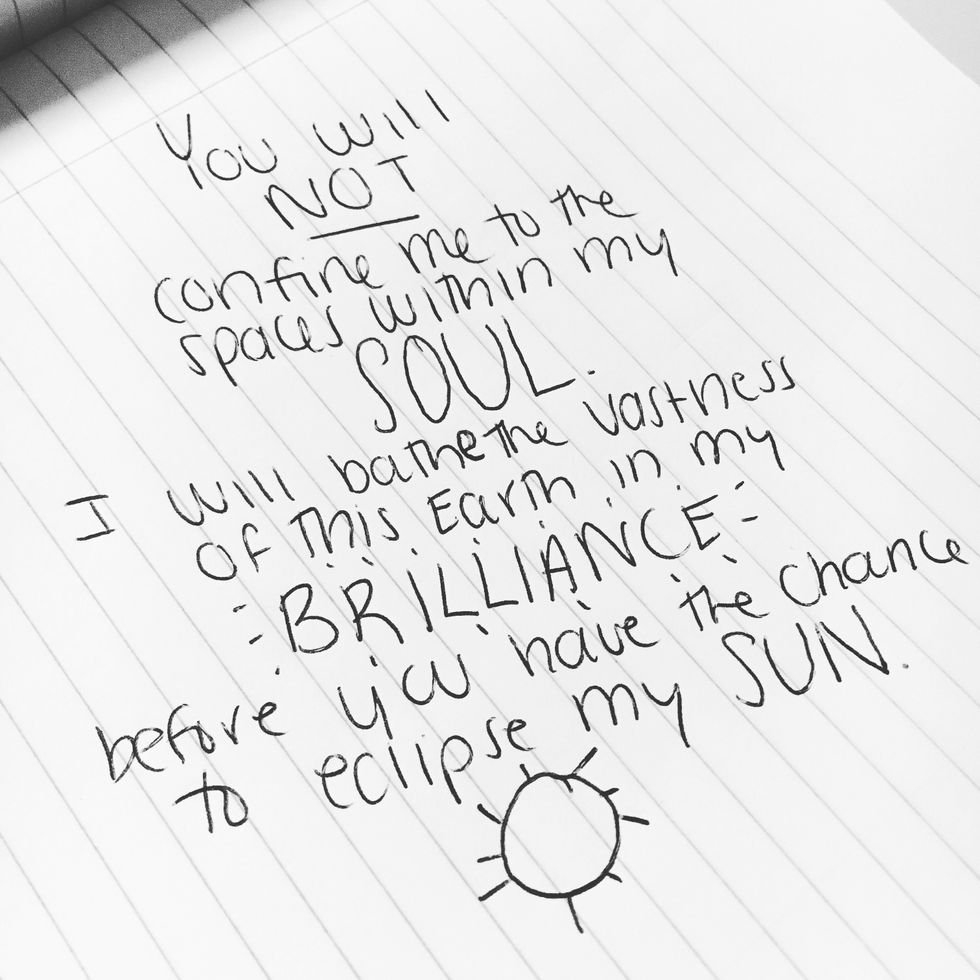 You will
NOT
confine me to the
spaces within my
SOUL.
I will bathe the vastness
of this Earth in my
BRILLIANCE
before you have the chance
to eclipse my SUN.